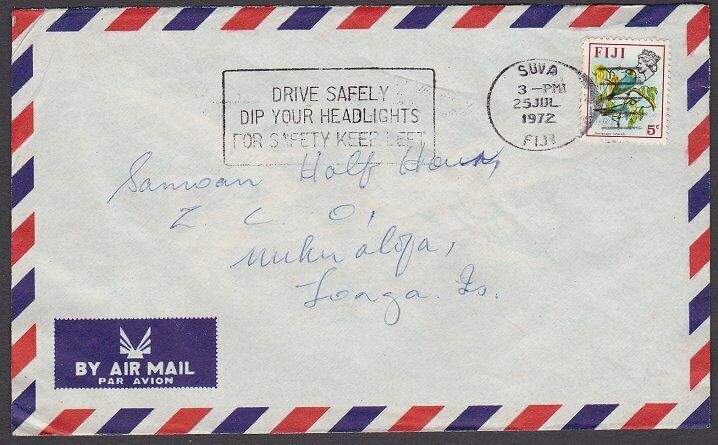 FIJI
5c
SUVA
3-PM
25 JUL
1972
FIJI
DRIVE SAFELY
DIP YOUR HEADLIGHTS
FOR SAFETY KEEP LEFT
Samoan Half Hour,
Z. C. O,
Nuku'alofa,
Tonga. Is.
BY AIR MAIL
PAR AVION